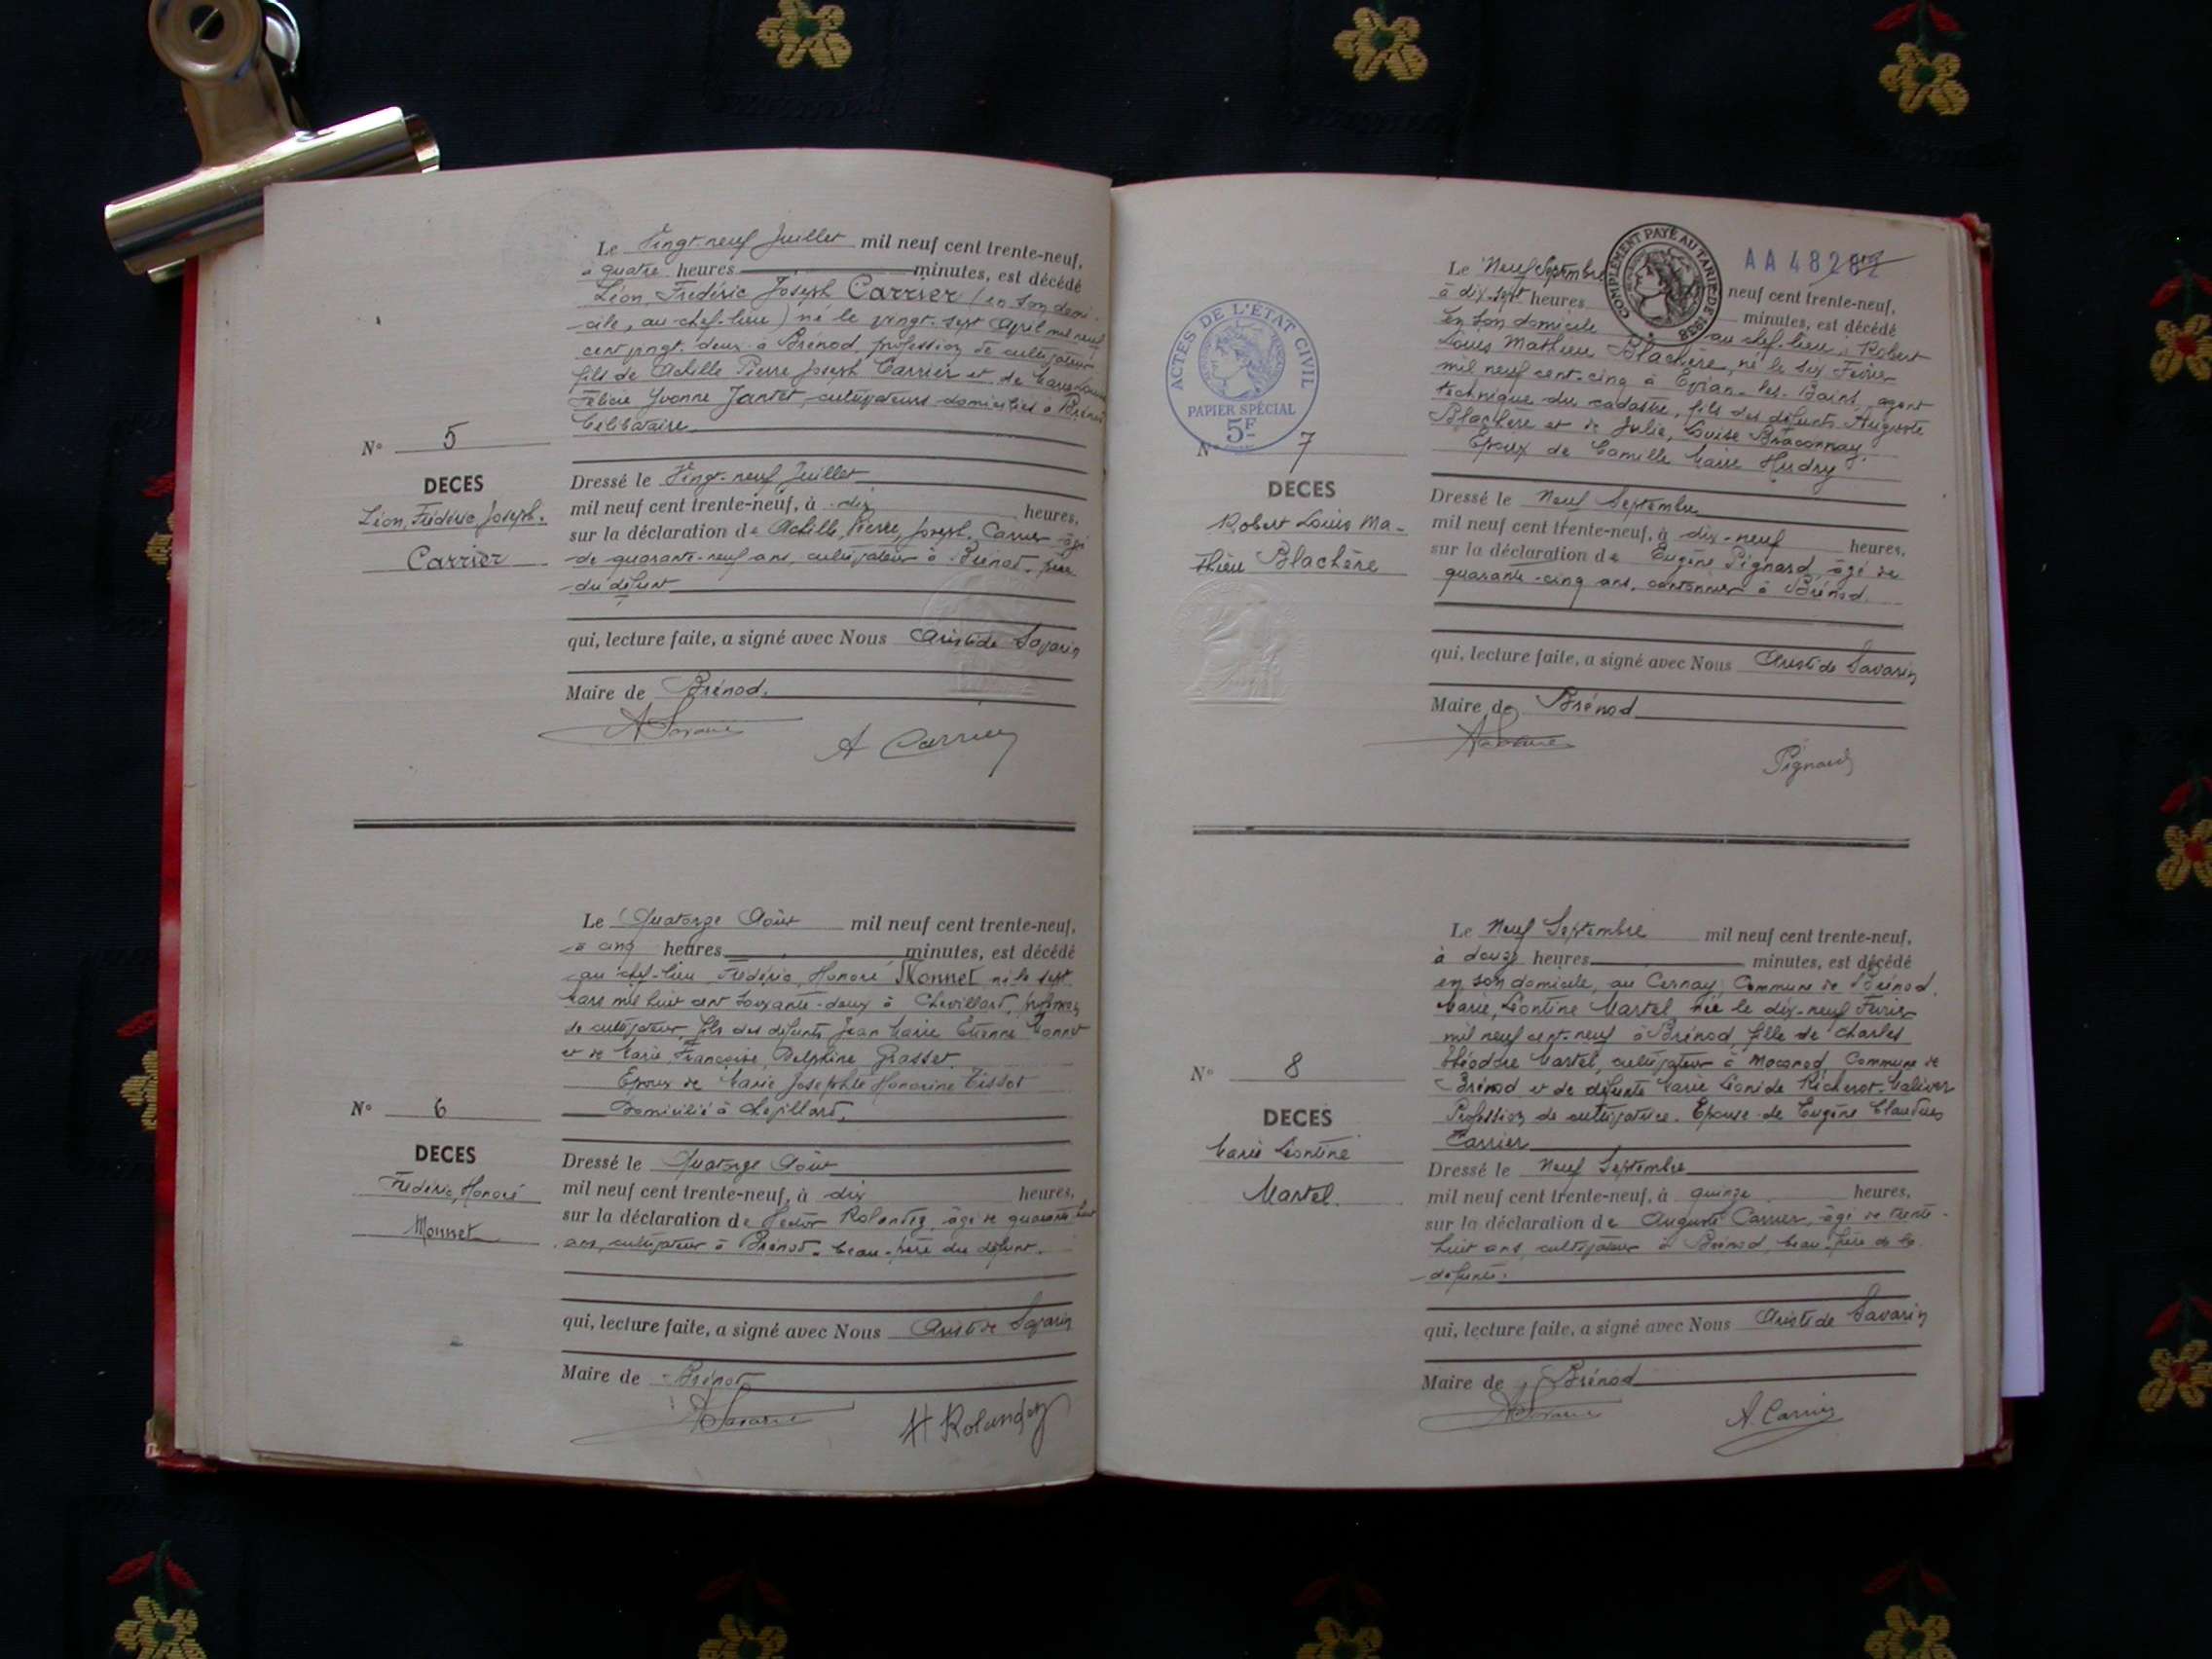 Le Vingt-neuf Juillet mil neuf cent trente-neuf,
à quatre heures minutes, est décédé
Léon, Frédéric Joseph Carrier (en son domi-
cile, au chef-lieu) né le vingt-sept Avril mil neuf
cent vingt-deux à Brénod, profession de cultivateur
fils de Achille Pierre Joseph Carrier et de Marie-Louise
Félicie Yvonne Jantet, cultivateurs domiciliés à Brénod
Célibataire
N° 5
DECES
Léon, Frédéric, Joseph.
Carrier
Dressé le Vingt-neuf Juillet
mil neuf cent trente-neuf, à dix heures,
sur la déclaration de Achille, Pierre, Joseph Carrier âgé
de quarante-neuf ans, cultivateur à Brénod, père
du défunt
qui, lecture faite, a signé avec Nous Aristide Savarin
Maire de Brénod.
A Savarin
A Carrier
Le Quatorze Août mil neuf cent trente-neuf,
à cinq heures minutes, est décédé
au chef-lieu Frédéric, Honoré Monnet né le sept
Mars mil huit cent soixante-deux à Chevillard, profession
de cultivateur, fils des défunts Jean Marie Etienne Monnet
et de Marie, Françoise, Delphine Grasset.
Epoux de Marie Josephte Honorine Tissot
Domicilié à Chevillard.
N° 6
DECES
Frédéric, Honoré
Monnet
Dressé le Quatorze Août
mil neuf cent trente-neuf, à dix heures,
sur la déclaration de Hector Rolandez, âgé de quarante-huit
ans, cultivateur à Brénod. beau-frère du défunt.
qui, lecture faite, a signé avec Nous Aristide Savarin
Maire de Brénod
A Savarin
H Rolandez
COMPLÉMENT PAYÉ AU TARIF DE 1938
AA 48282
Le Neuf Septembre neuf cent trente-neuf,
à dix-sept heures minutes, est décédé
en son domicile au chef-lieu, Robert
Louis Mathieu Blachère, né le six Février
mil neuf cent-cinq à Evian-les-Bains, agent
technique du cadastre, fils des défunts Auguste
Blachère et de Julie, Louise Braconnay.
Epoux de Camille Marie Hudry
ACTES DE L'ÉTAT CIVIL
PAPIER SPÉCIAL
5F
N° 7
DECES
Robert Louis Ma-
thieu Blachère
Dressé le Neuf Septembre
mil neuf cent trente-neuf, à dix-neuf heures,
sur la déclaration de Eugène Pignard, âgé de
quarante-cinq ans, cantonnier à Brénod.
qui, lecture faite, a signé avec Nous Aristide Savarin
Maire de Brénod
A Savarin
Pignard
Le Neuf Septembre mil neuf cent trente-neuf,
à douze heures minutes, est décédé
en son domicile, au Cernay, Commune de Brénod.
Marie, Léontine Martel, née le dix-neuf Février
mil neuf cent-neuf à Brénod, fille de Charles
Théodore Martel, cultivateur à Moconod Commune de
Brénod et de défunte Marie Léonide Richerot-Malivert
Profession de cultivatrice. Epouse de Eugène Claudius
Carrier
N° 8
DECES
Marie Léontine
Martel.
Dressé le Neuf Septembre
mil neuf cent trente-neuf, à quinze heures,
sur la déclaration de Auguste Carrier, âgé de trente-
huit ans, cultivateur à Brénod, beau-frère de la
défunte.
qui, lecture faite, a signé avec Nous Aristide Savarin
Maire de Brénod
A Savarin
A. Carrier